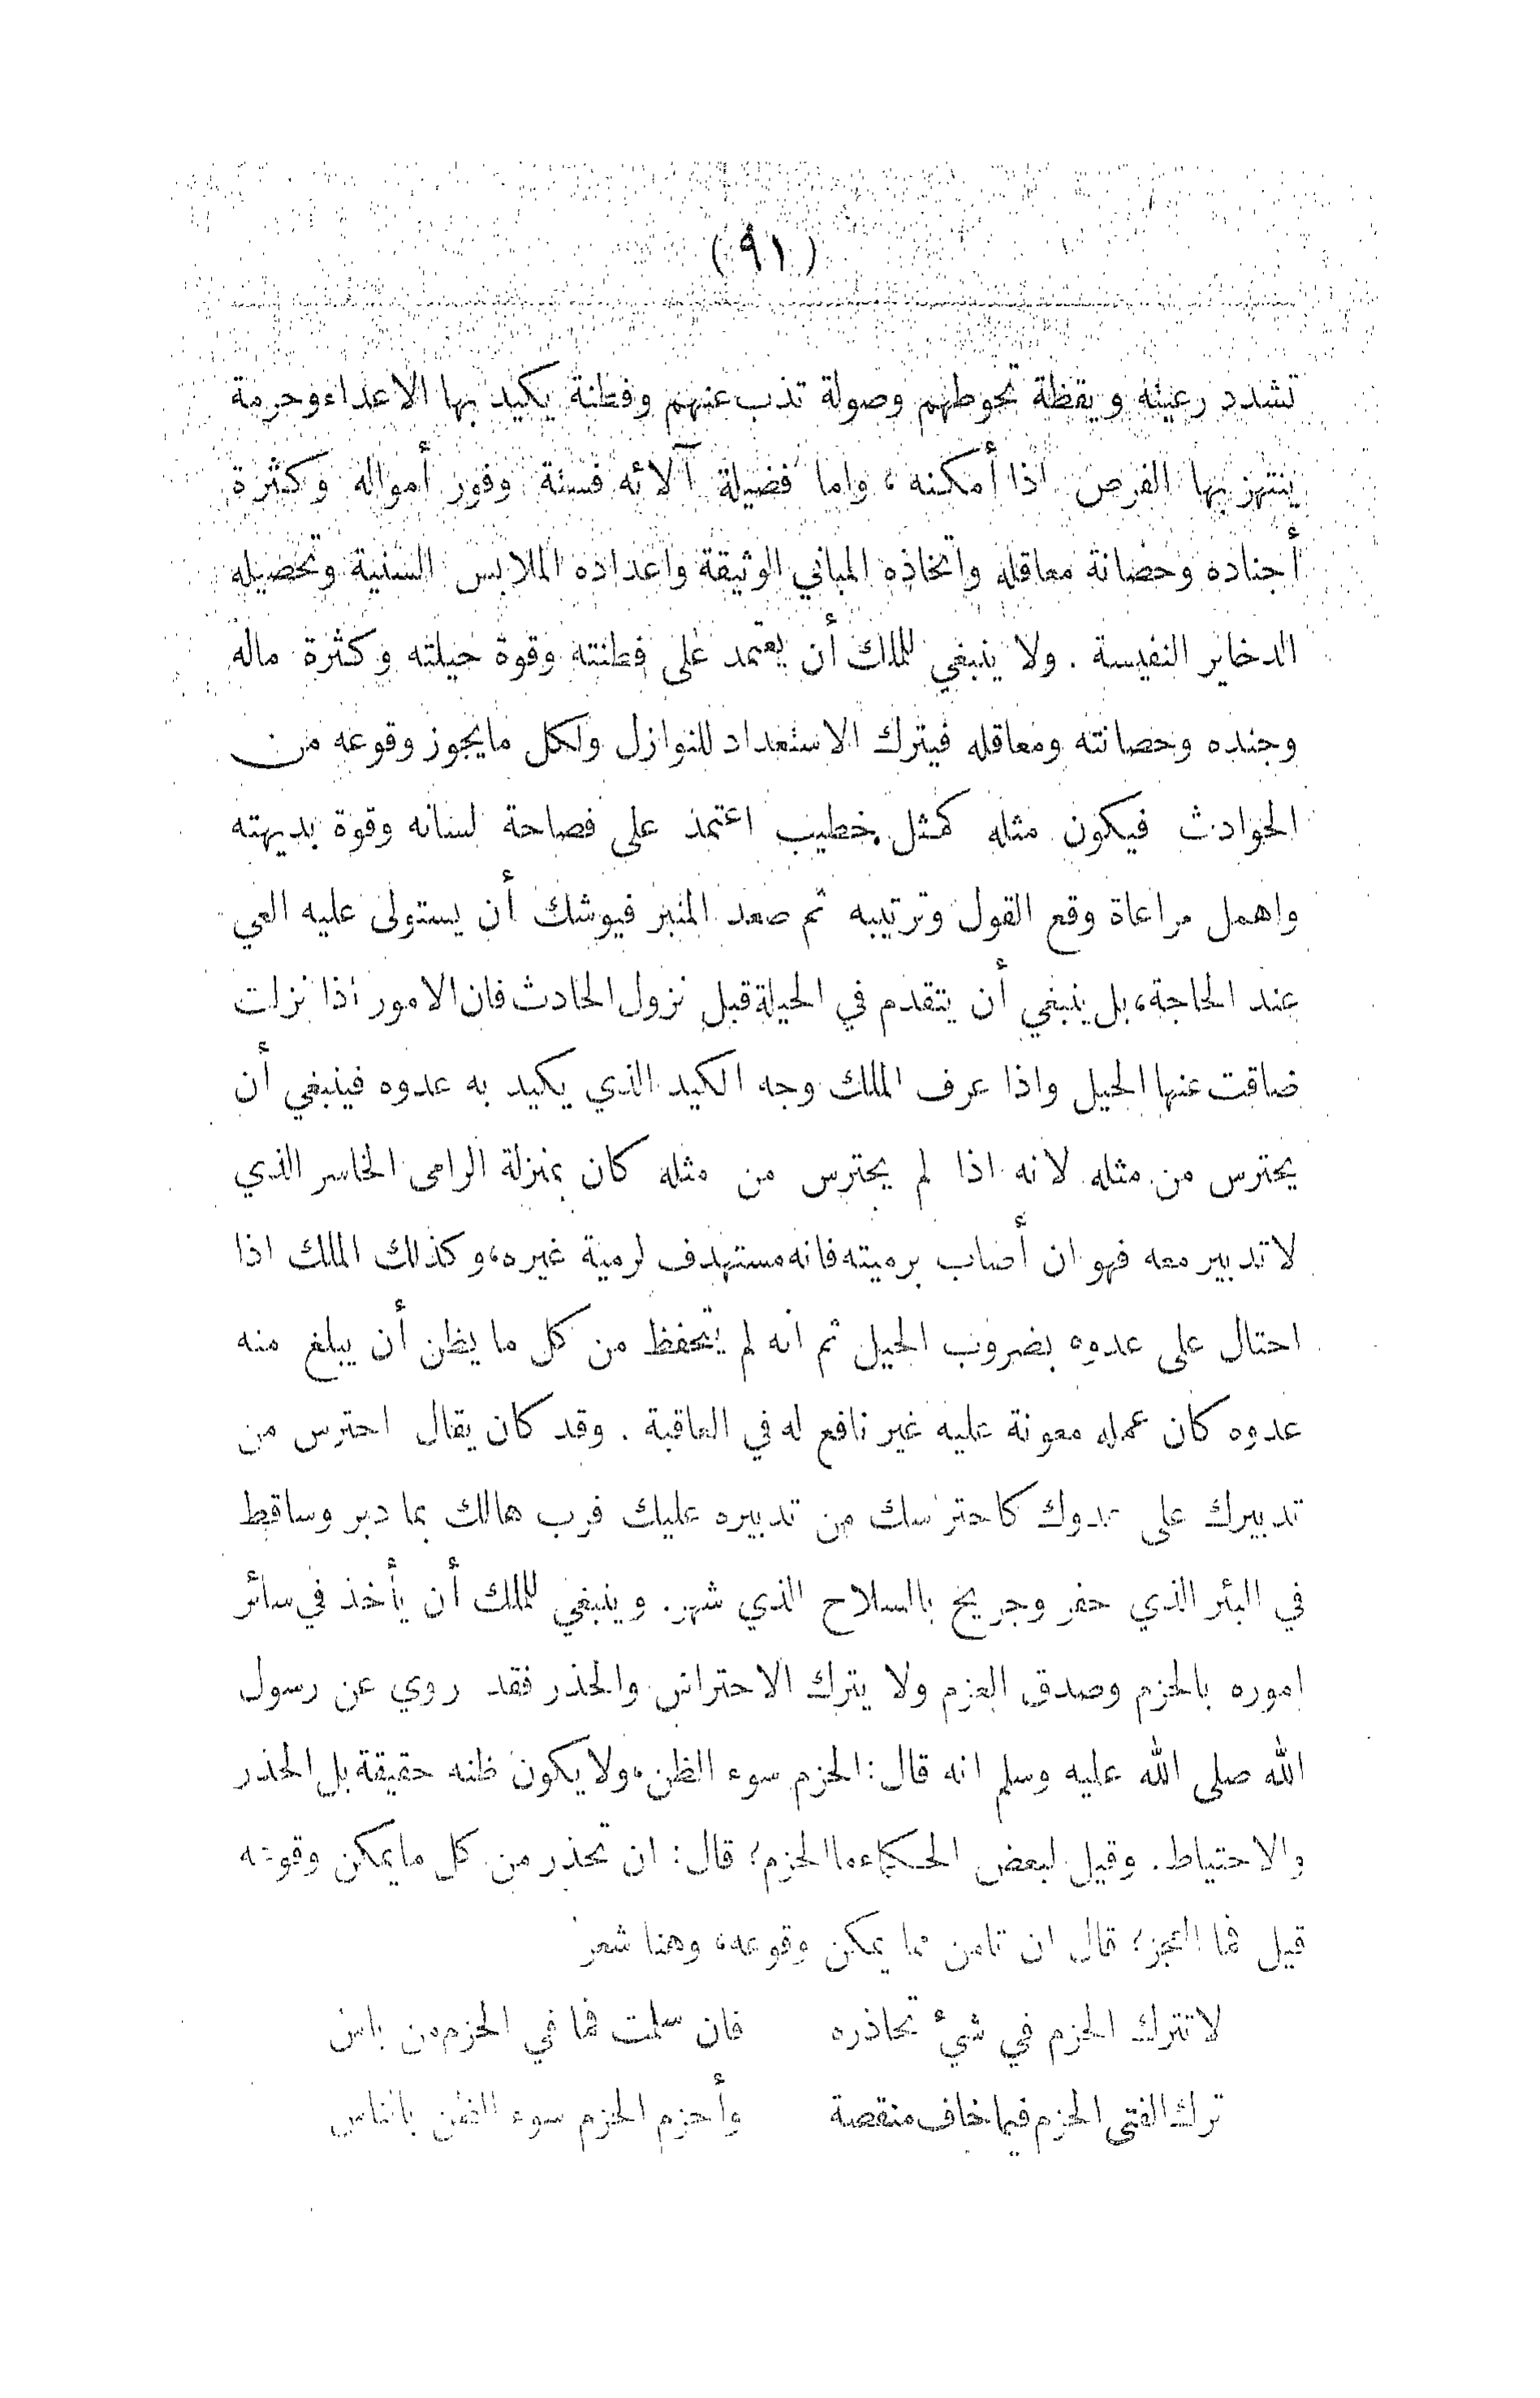 (٩١)
تشدد رعيته ويقظة تحوطهم وصولة تذب عنهم وفطنة يكيد بها الاعداء وحرمة
ينتهز بها الفرص اذا أمكنه، واما فضيلة آلائه فستة وفور أمواله وكثرة
أجناده وحصانة معاقله واتخاذه المباني الوثيقة واعداده الملابس السنية وتحصيله
الدخاير النفيسة . ولا ينبغي للملك أن يعتمد على فطنته وقوة حيلته وكثرة ماله
وجنده وحصانته ومعاقله فيترك الاستعداد للنوازل ولكل مايجوز وقوعه من
الحوادث فيكون مثله كمثل خطيب اعتمد على فصاحة لسانه وقوة بديهته
واهمل مراعاة وقع القول وترتيبه ثم صعد المنبر فيوشك أن يستولى عليه العي
عند الحاجة، بل ينبغي أن يتقدم في الحيلة قبل نزول الحادث فان الامور اذا نزلت
ضاقت عنها الحيل واذا عرف الملك وجه الكيد الذي يكيد به عدوه فينبغي أن
يحترس من مثله لانه اذا لم يحترس من مثله كان بمنزلة الرامى الخاسر الذي
لا تدبير معه فهو ان أصاب برميته فانه مستهدف لرمية غيره، وكذلك الملك اذا
احتال على عدوه بضروب الحيل ثم انه لم يتحفظ من كل ما يظن أن يبلغ منه
عدوه كان عمله معونة عليه غير نافع له في العاقبة . وقد كان يقال احترس من
تدبيرك على عدوك كاحترسك من تدبيره عليك فرب هالك بما دبر وساقط
في البئر الذي حفر وجريح بالسلاح الذي شهر. وينبغي للملك أن يأخذ في سائر
اموره بالحزم وصدق العزم ولا يترك الاحتراس والحذر فقد روي عن رسول
الله صلى الله عليه وسلم انه قال: الحزم سوء الظن، ولا يكون ظنه حقيقة بل الحذر
والاحتياط. وقيل لبعض الحكماء ما الحزم؛ قال: ان تحذر من كل مايمكن وقوعه
قيل فما العجز؛ قال ان تامن مما يمكن وقوعه، وهنا شعر
لا تترك الحزم في شيء تحاذره فان سلمت فما في الحزم من باس
ترك الفتى الحزم فيما خاف منقصة وأحزم الحزم سوء الظن بالناس